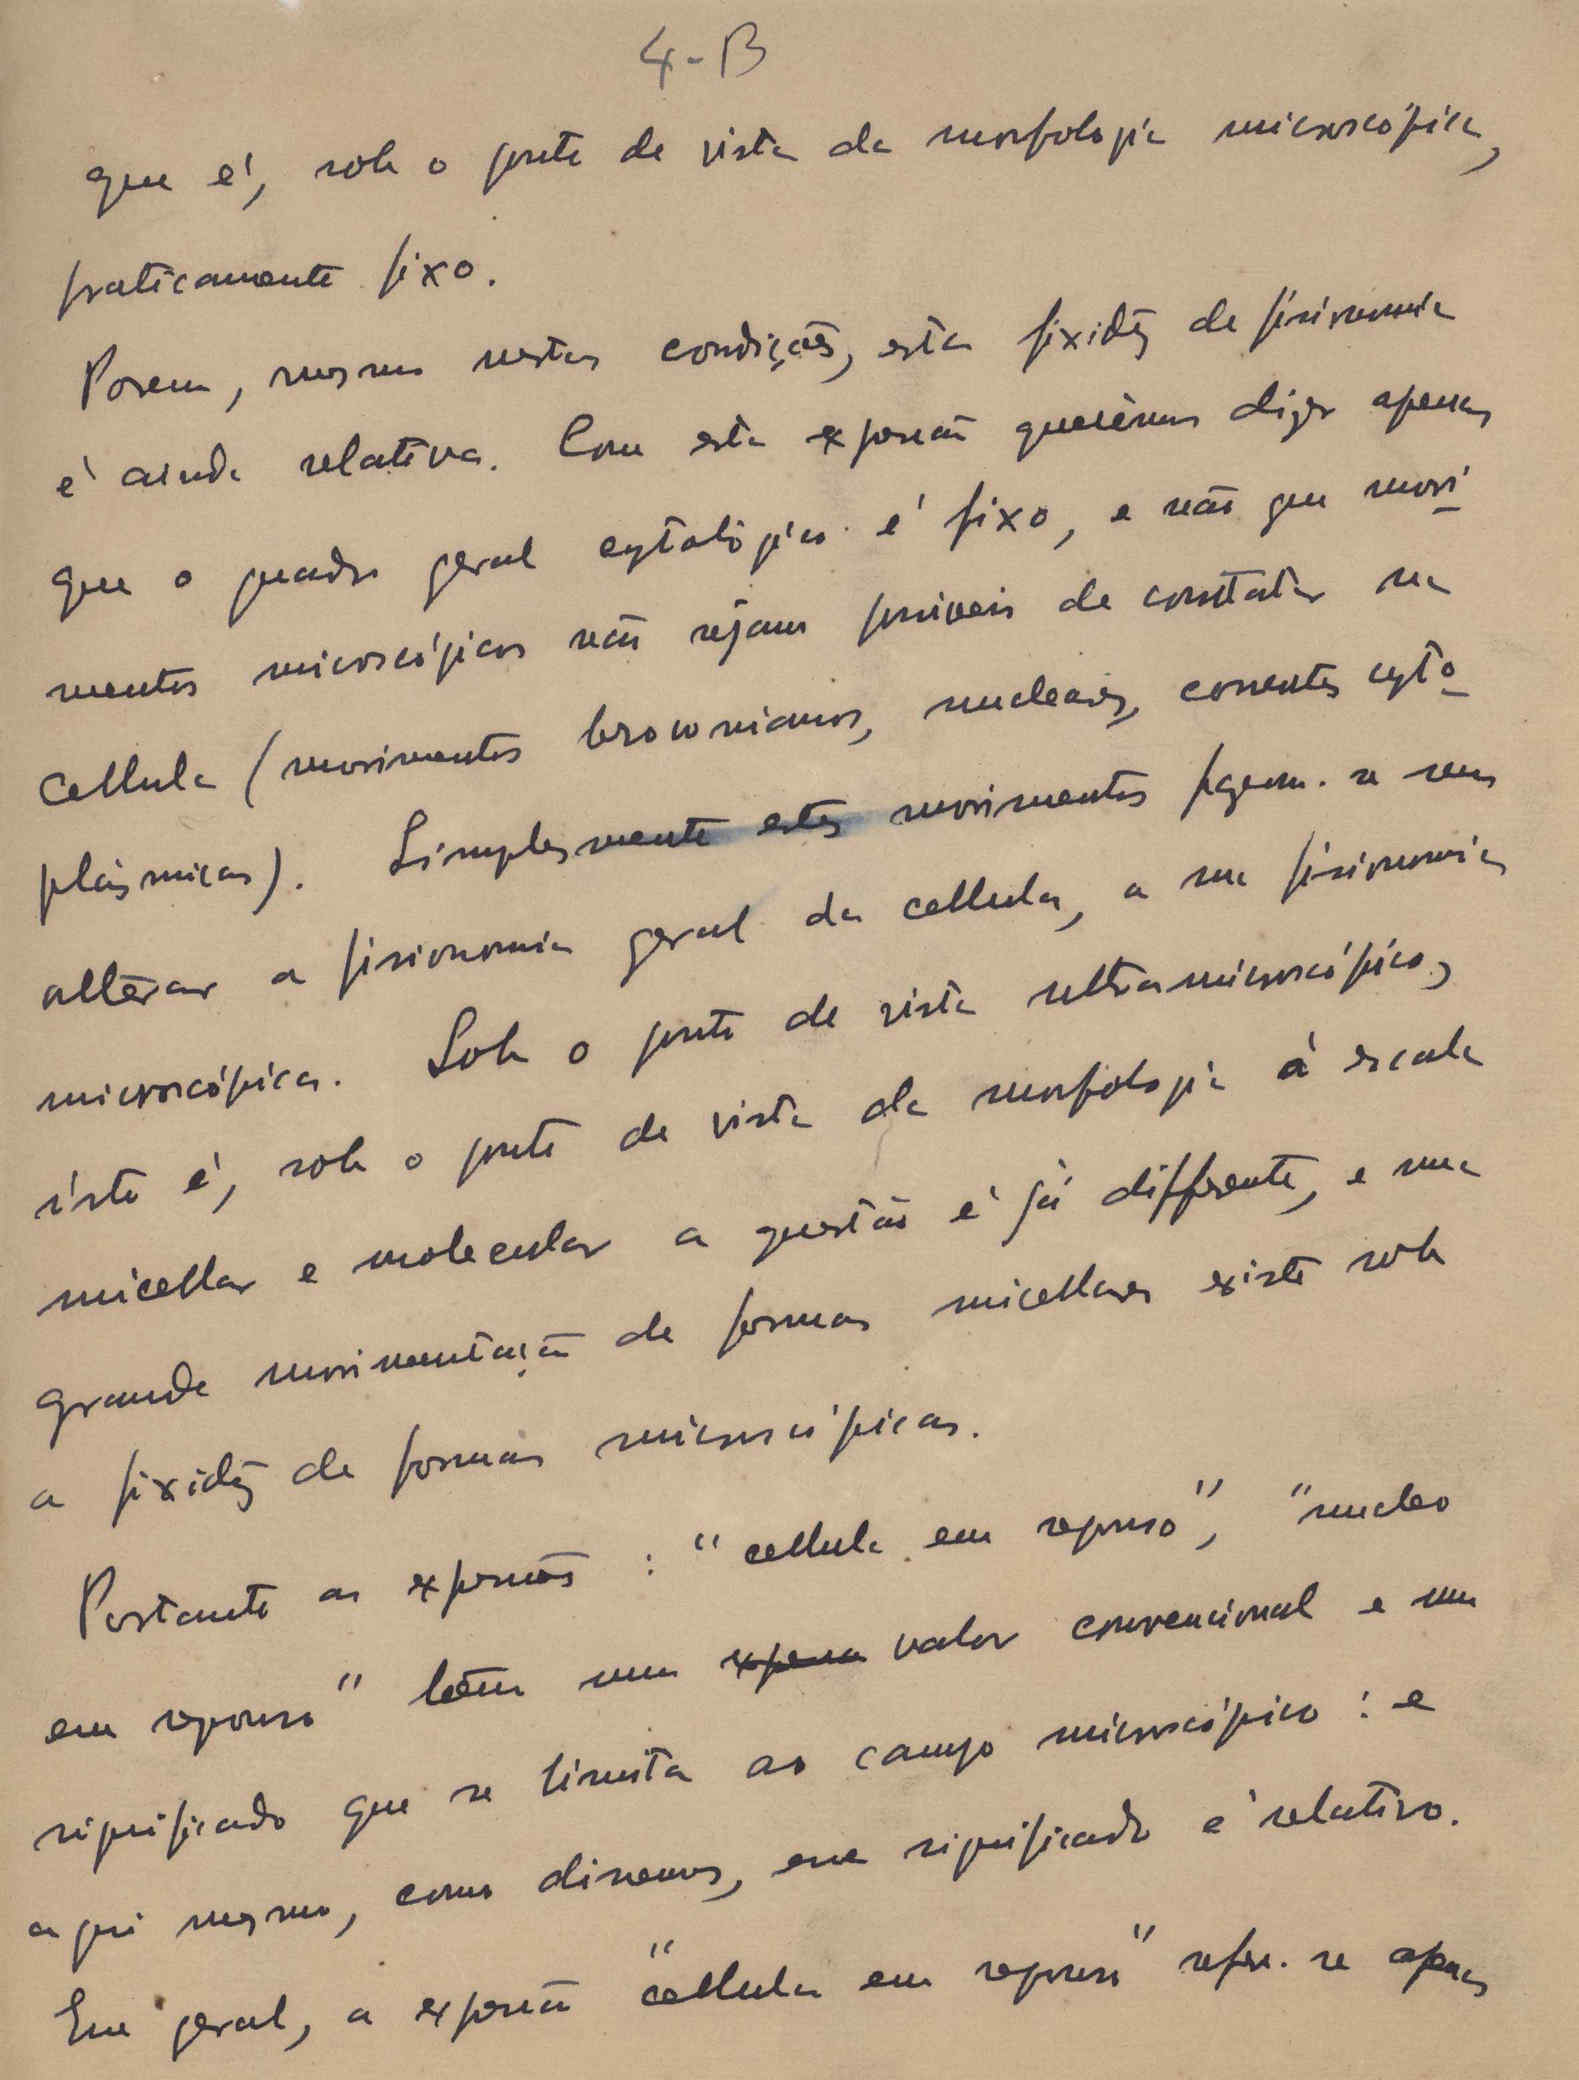 4-B
que é, sob o ponto de vista da morfologia microscópica,
praticamente fixo.
Porem, mesmo nestas condições, esta fixidêz de fisionomia
é ainda relativa. Com esta expressão querêmos dizer apenas
que o quadro geral cytológico é fixo, e não que movi-
mentos microscópicos não sejam possiveis de constatar na
cellula (movimentos brownianos, nucleares, correntes cyto-
plásmicas). Simplesmente estes movimentos fazem-se sem
alterar a fisionomia geral da cellula, a sua fisionomia
microscópica. Sob o ponto de vista ultramicroscópico,
isto é, sob o ponto de vista da morfologia á escala
micellar e molecular a questão é já differente, e uma
grande movimentação de formas micellares existe sob
a fixidêz de formas microscópicas.
Portanto as expressões: "cellula em repouso", "nucleo
em repouso" têem um valor convencional e um
significado que se limita ao campo microscópico: e
aqui mesmo, como dissemos, esse significado é relativo.
Em geral, a expressão "cellula em repouso" refere-se apenas